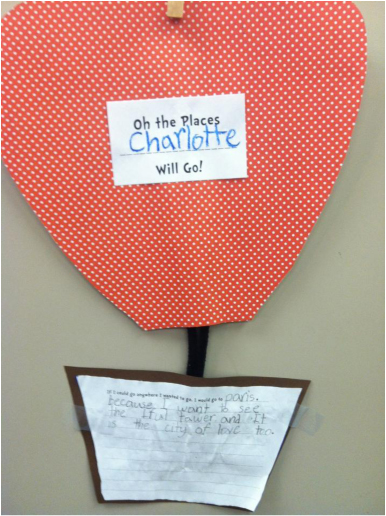 Oh the Places
Charlotte
Will Go!
If I could go anywhere I wanted to go, I would go to paris.
because I want to see
the Iful tawer and it
is the city of love too.